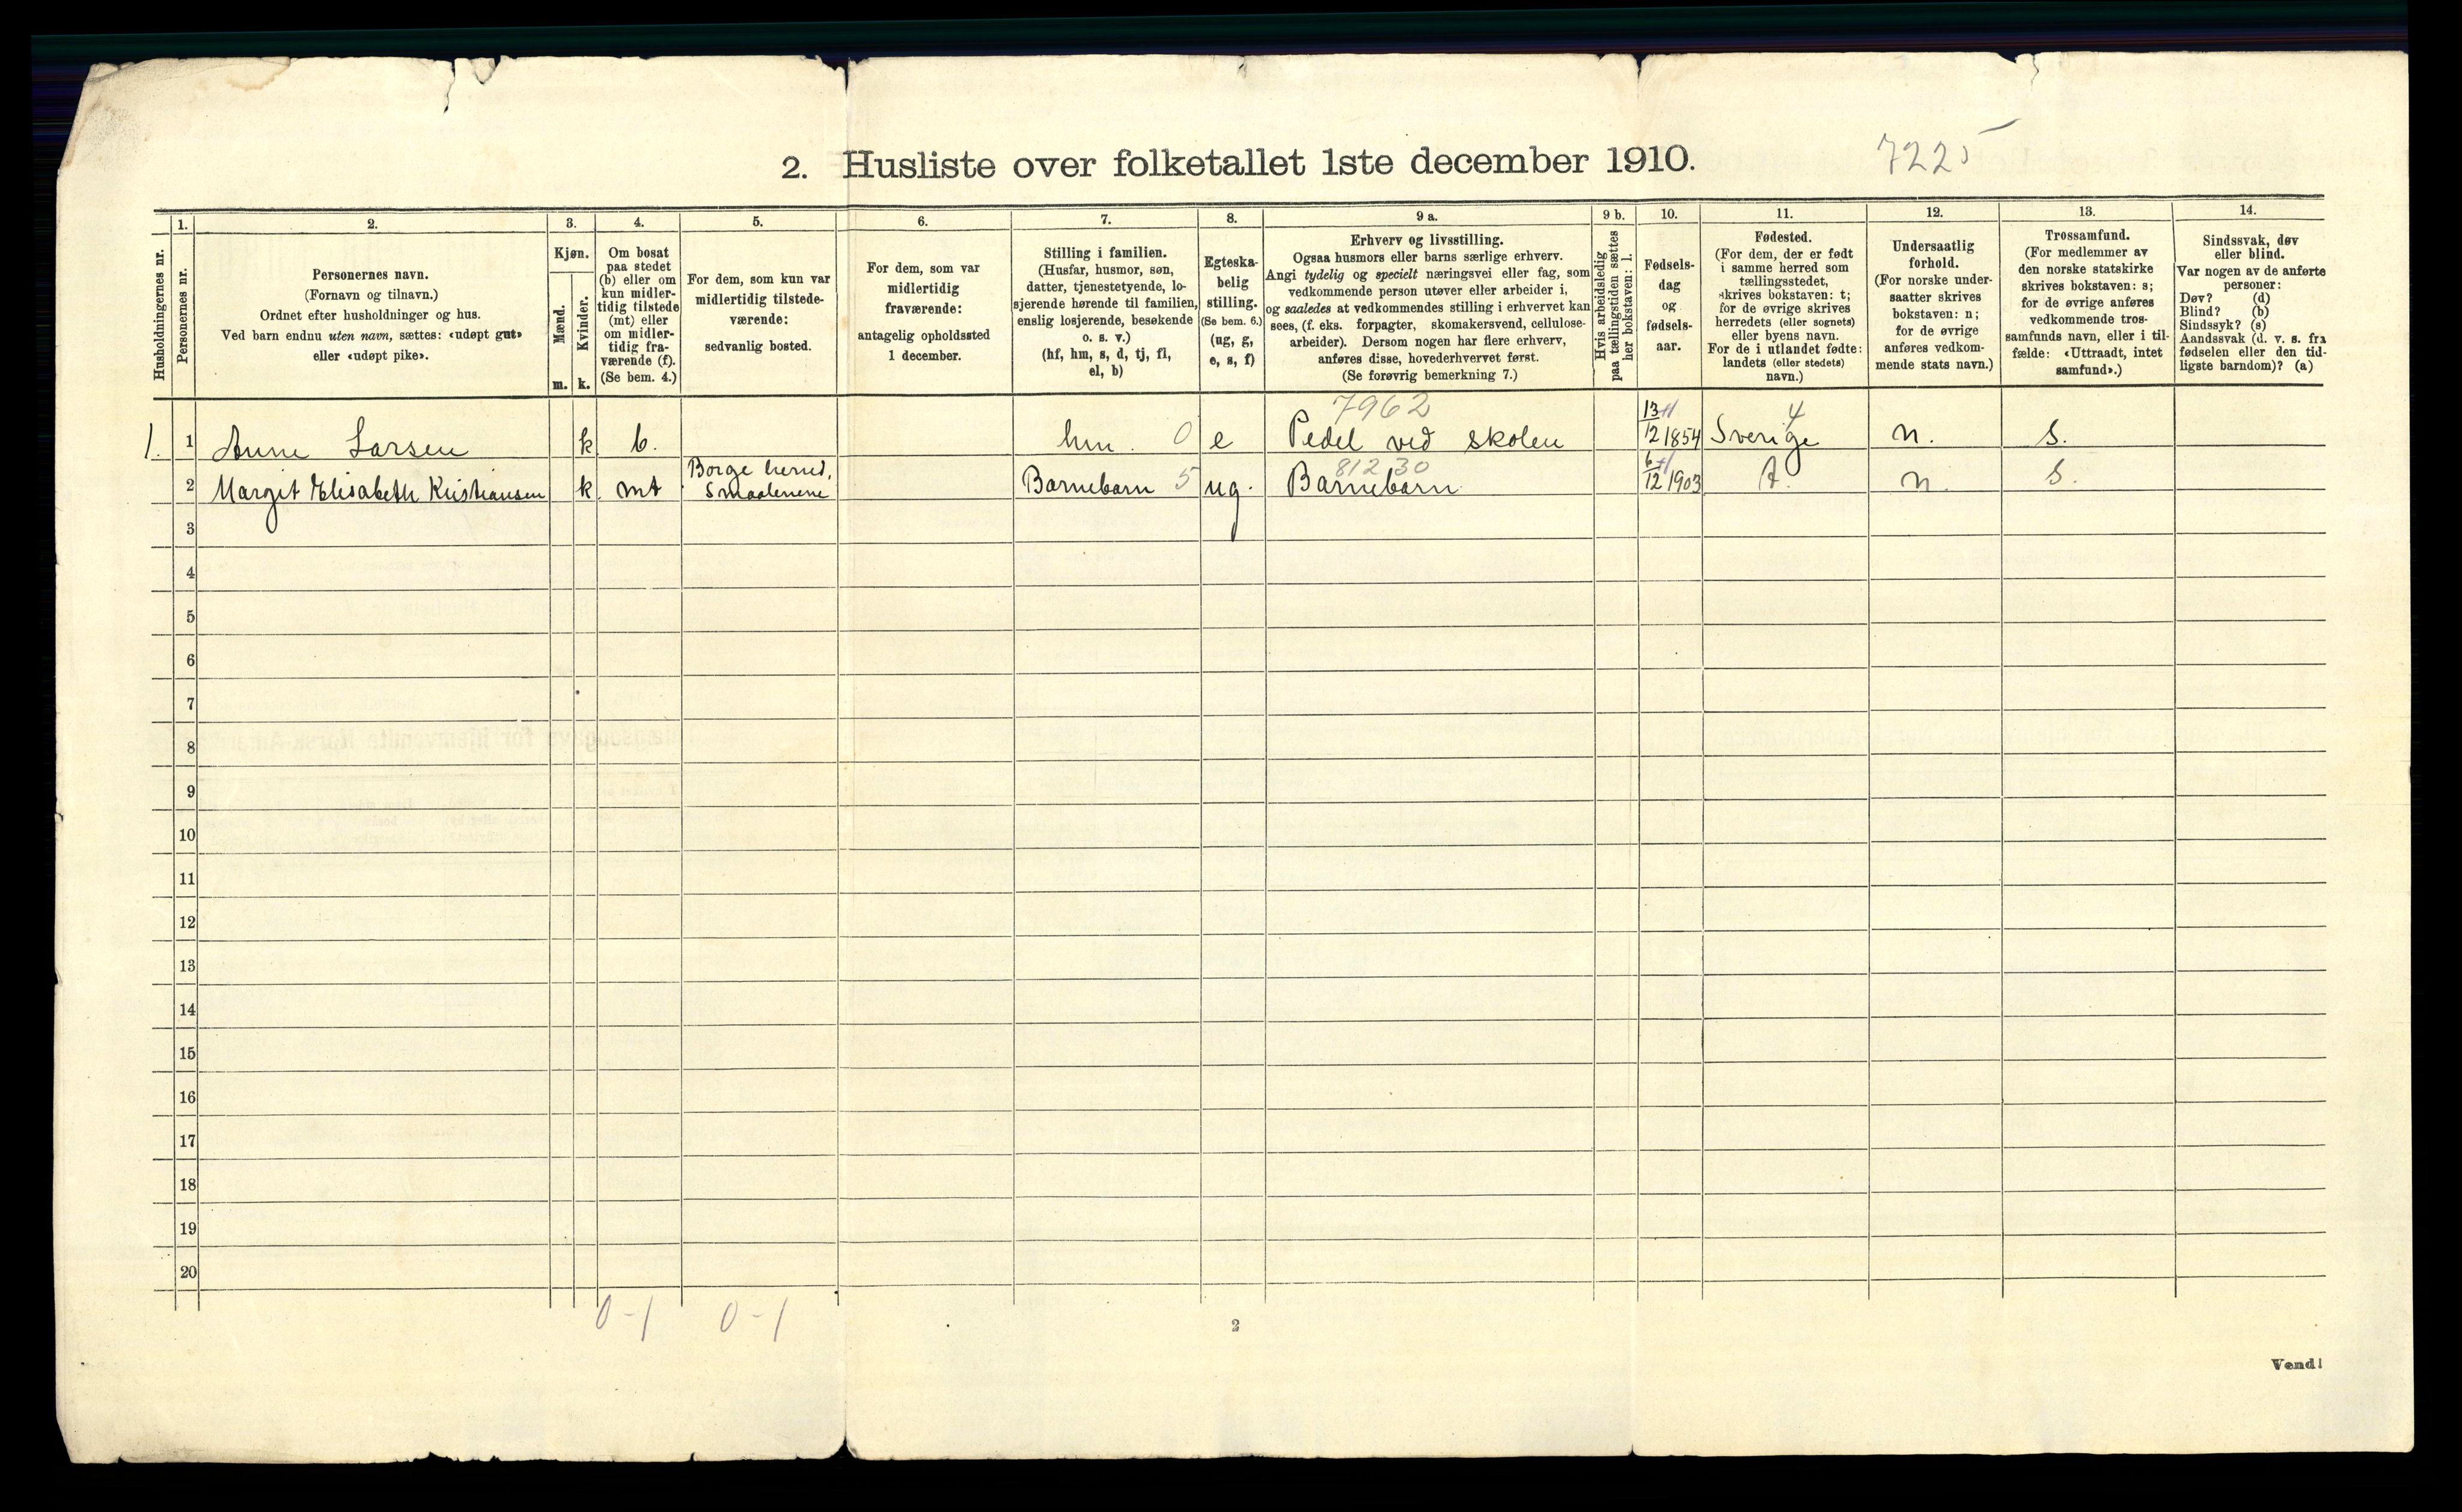 2. Husliste over folketallet 1ste december 1910.
7225
1. 2. 3. 4. 5. 6. 7. 8. 9 a. 9 b. 10. 11. 12. 13. 14.
Husholdningernes nr.
Personernes nr.
Personernes navn.
(Fornavn og tilnavn.)
Ordnet efter husholdninger og hus.
Ved barn endnu uten navn, sættes: «udøpt gut»
eller «udøpt pike».
Kjøn.
Mænd.
Kvinder.
m. k.
Om bosat
paa stedet
(b) eller om
kun midler-
tidig tilstede
(mt) eller
om midler-
tidig fra-
værende (f).
(Se bem. 4.)
For dem, som kun var
midlertidig tilstede-
værende:
sedvanlig bosted.
For dem, som var
midlertidig
fraværende:
antagelig opholdssted
1 december.
Stilling i familien.
(Husfar, husmor, søn,
datter, tjenestetyende, lo-
sjerende hørende til familien,
enslig losjerende, besøkende
o. s. v.)
(hf, hm, s, d, tj, fl,
el, b)
Egteska-
belig
stilling.
(Se bem. 6.)
(ug, g,
e, s, f)
Erhverv og livsstilling.
Ogsaa husmors eller barns særlige erhverv.
Angi tydelig og specielt næringsvei eller fag, som
vedkommende person utøver eller arbeider i,
og saaledes at vedkommendes stilling i erhvervet kan
sees, (f. eks. forpagter, skomakersvend, cellulose-
arbeider). Dersom nogen har flere erhverv,
anføres disse, hovederhvervet først.
(Se forøvrig bemerkning 7.)
Hvis arbeidsledig
paa tællingstiden sættes
her bokstaven: l.
Fødsels-
dag
og
fødsels-
aar.
Fødested.
(For dem, der er født
i samme herred som
tællingsstedet,
skrives bokstaven: t;
for de øvrige skrives
herredets (eller sognets)
eller byens navn.
For de i utlandet fødte:
landets (eller stedets)
navn.)
Undersaatlig
forhold.
(For norske under-
saatter skrives
bokstaven: n;
for de øvrige
anføres vedkom-
mende stats navn.)
Trossamfund.
(For medlemmer av
den norske statskirke
skrives bokstaven: s;
for de øvrige anføres
vedkommende tros-
samfunds navn, eller i til-
fælde: «Uttraadt, intet
samfund».)
Sindssvak, døv
eller blind.
Var nogen av de anførte
personer:
Døv? (d)
Blind? (b)
Sindssyk? (s)
Aandssvak (d. v. s. fra
fødselen eller den tid-
ligste barndom)? (a)
7962 4
1. 1 Anne Larsen k b. hm. 0 e Pedel ved skolen 13/12 1854 Sverige n. s.
Borge herred, 812 30
2 Margit Elisabeth Kristiansen k. mt Smaalenene Barnebarn 5 ug. Barnebarn 6/12 1903 t. n. s.
3
4
5
6
7
8
9
10
11
12
13
14
15
16
17
18
19
20
0-1 0-1
2
Vend!